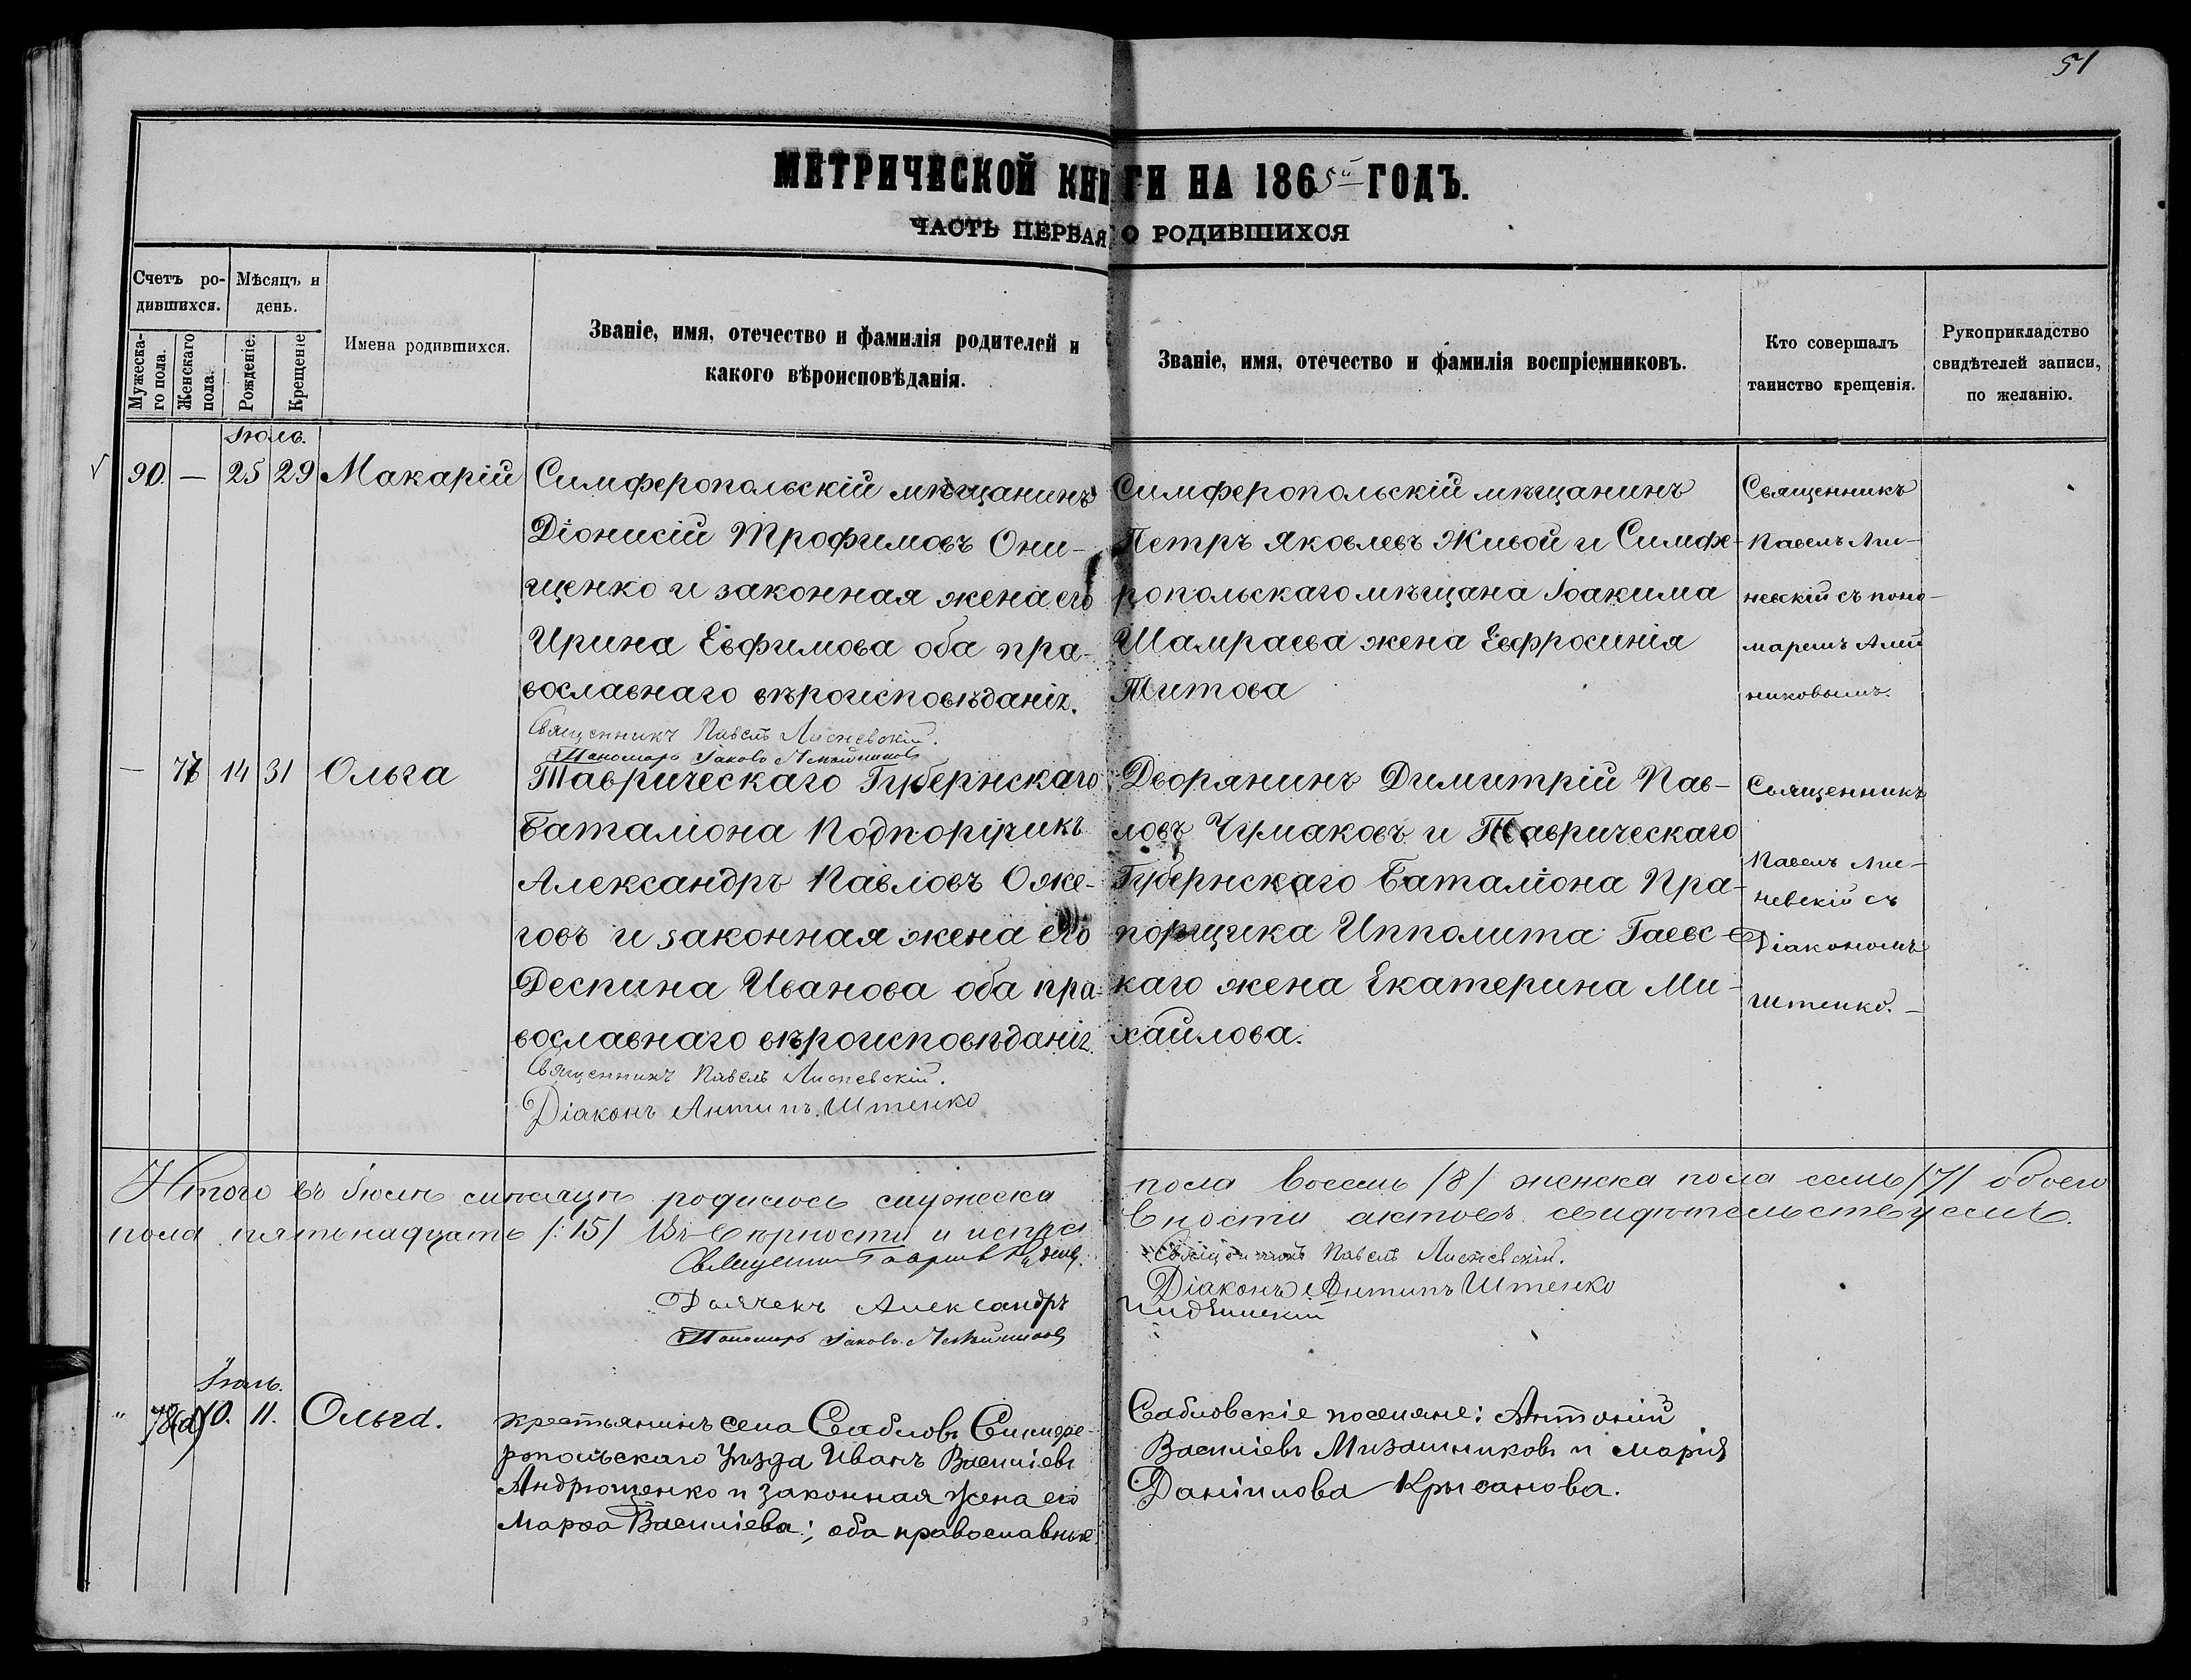 51
МЕТРИЧЕСКОЙ КНИГИ НА 1865й ГОДЪ.
ЧАСТЬ ПЕРВАЯ О РОДИВШИХСЯ
Счетъ ро-
дившихся.
Мужеска-
го пола.
Женскаго
пола.
Мѣсяцъ и
день.
Рожденіе.
Крещеніе
Имена родившихся.
Званіе, имя, отечество и фамилія родителей и
какого вѣроисповѣданія.
Званіе, имя, отечество и фамилія воспріемниковъ.
Кто совершалъ
таинство крещенія.
Рукоприкладство
свидѣтелей записи,
по желанію.
Іюль.
90. — 25 29 Макарій
Симферопольскій мѣщанинъ
Діонисій Трофимовъ Они-
щенко и законная жена его
Ирина Евфимова оба пра-
вославнаго вѣроисповѣданія.
Священникъ Павелъ Лисневскій.
Пономарь Іаковъ
Симферопольскій мѣщанинъ
Петръ Яковлевъ Живой и Симфе-
ропольскаго мѣщана Іоакима
Шамраева жена Евфросинія
Титова
Священникъ
Павелъ Лис-
невскій съ поно-
маремъ
— 77 14 31 Ольга
Таврическаго Губернскаго
Баталіона Подпоручикъ
Александръ Павловъ Оже-
говъ и законная жена его
Деспина Иванова оба пра-
вославнаго вѣроисповѣданія.
Священникъ Павелъ Лисневскій.
Діаконъ Антипъ Штенко
Дворянинъ Димитрій Пав-
ловъ Чумаковъ и Таврическаго
Губернскаго Баталіона Пра-
порщика Ипполита Гаевс-
каго жена Екатерина Ми-
хаилова.
Священникъ
Павелъ Лис-
невскій съ
Діакономъ
Штенко.
Итого въ Іюлѣ мѣсяцѣ родилось мужеска пола восемь /8/ женска пола семь /7/ обоего
пола пятьнадцать /:15/ Въ вѣрности и исправности актовъ свидѣтельствуемъ.
Священникъ Гавріилъ
Священникъ Павелъ Лисневскій.
Діаконъ Антипъ Штенко
Дьячекъ Александръ
Пономарь Іаковъ
Іюль.
" 78(а) 10. 11. Ольга.
крестьянинъ села Саблов Симфе-
ропольскаго Уѣзда Иванъ Василіевъ
Андрющенко и законная жена его
Марѳа Василіева; оба православные.
Сабловскіе поселяне: Антоній
Василіевъ Мизашниковъ и Марія
Даніилова Крысанова.